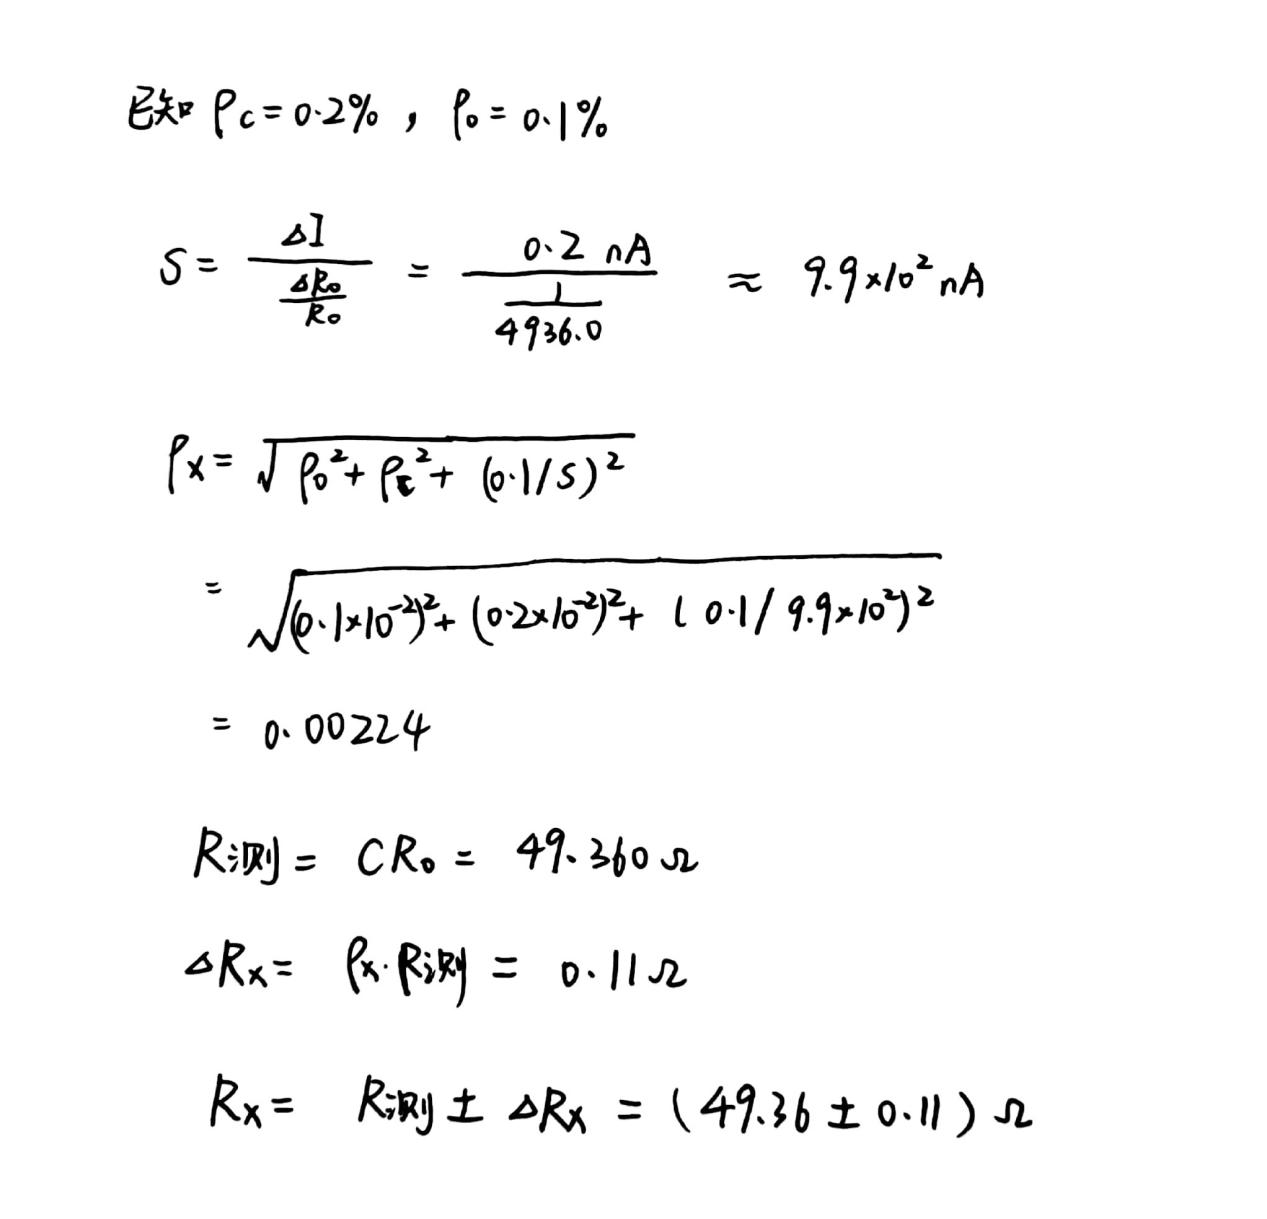 已知 ρc = 0.2% , ρ₀ = 0.1%
S = ΔI / (ΔR₀/R₀) = 0.2 nA / (1/4936.0) ≈ 9.9×10² nA
ρx = √(ρ₀² + ρc² + (0.1/S)²)
= √((0.1×10⁻²)² + (0.2×10⁻²)² + (0.1/9.9×10²)²)
= 0.00224
R测 = CR₀ = 49.360 Ω
ΔRx = ρx·R测 = 0.11Ω
Rx = R测 ± ΔRx = (49.36 ± 0.11) Ω